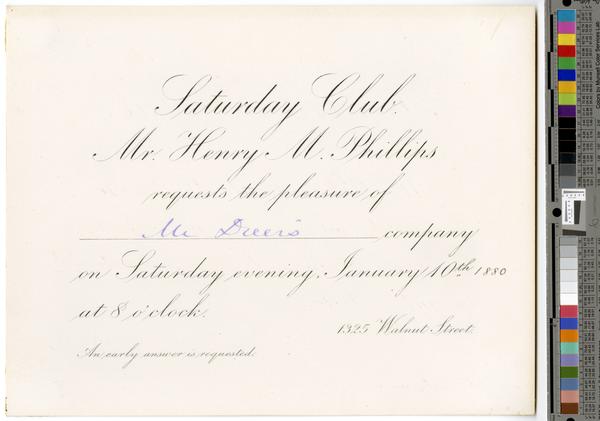 Saturday Club.
Mr. Henry M. Phillips
requests the pleasure of
Mr Dreer's company
on Saturday evening, January 10th 1880
at 8 o'clock.
1325 Walnut Street.
An early answer is requested.
Colors by Munsell Color Services Lab